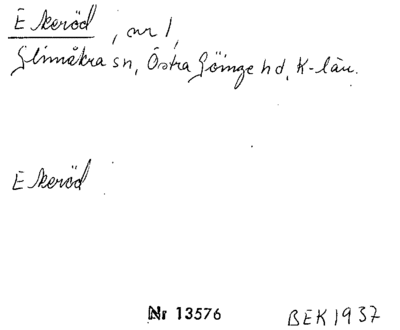 Ekeröd, nr 1,
Glimåkra sn, Östra Göinge hd, K-län.
Ekeröd
Nr 13576
BEK 1937